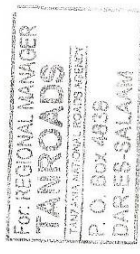 For: REGIONAL MANAGER
TANROADS
TANZANIA NATIONAL ROADS AGENCY
P. O. BOX 4836
DAR-ES-SALAAM